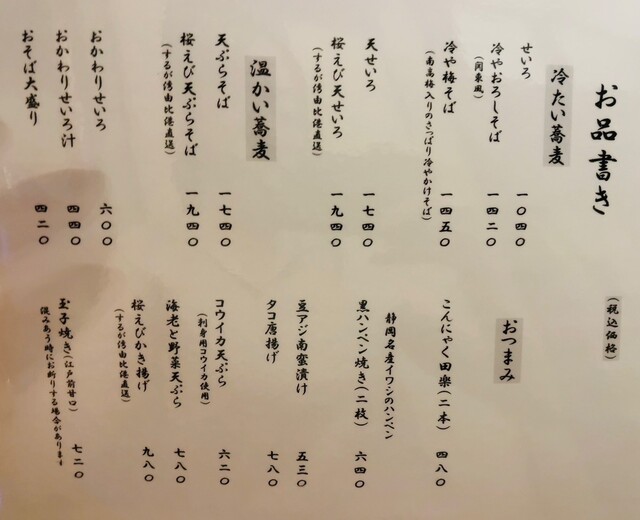 お品書き
(税込価格)
冷たい蕎麦
せいろ 一〇四〇
冷やおろしそば 一四二〇
(関東風)
冷や梅そば 一四五〇
(南高梅入りのさっぱり冷やかけそば)
天せいろ 一七四〇
桜えび天せいろ 一九四〇
(するが湾由比港直送)
温かい蕎麦
天ぷらそば 一七四〇
桜えび天ぷらそば 一九四〇
(するが湾由比港直送)
おかわりせいろ 六〇〇
おかわりせいろ汁 四四〇
おそば大盛り 四二〇
おつまみ
こんにゃく田楽(二本) 四八〇
静岡名産イワシのハンペン
黒ハンペン焼き(二枚) 六四〇
豆アジ南蛮漬け 五三〇
タコ唐揚げ 七八〇
コウイカ天ぷら 六二〇
(刺身用コウイカ使用)
海老と野菜天ぷら 七八〇
桜えびかき揚げ 九八〇
(するが湾由比港直送)
玉子焼き(江戸前甘口) 七二〇
混みあう時にお断りする場合があります